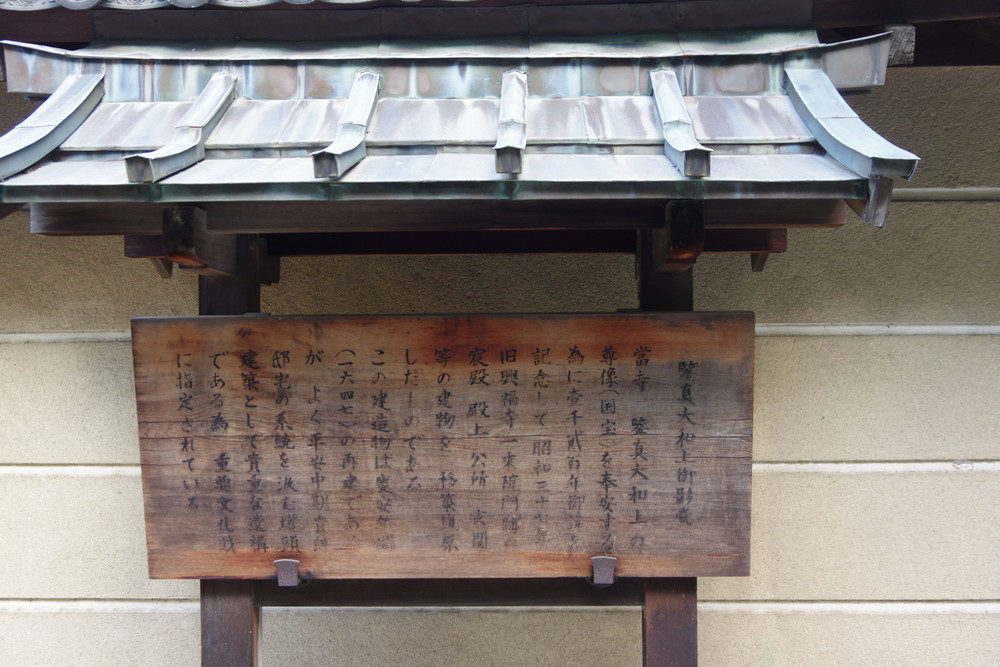 鑒真大和上御影堂
當寺 鑒真大和上の
尊像(国宝)を奉安する
為に壹千貳百年御諱を
記念して 昭和三十七年
旧興福寺一乗院門跡の
宸殿 殿上 公所 玄関
等の建物を 移築復原
したものである
この建造物は慶安年間
(一六四七)の再建である
が よく平安中期
邸宅の系統を汲む
建築として貴重な遺構
である為 重要文化財
に指定されている